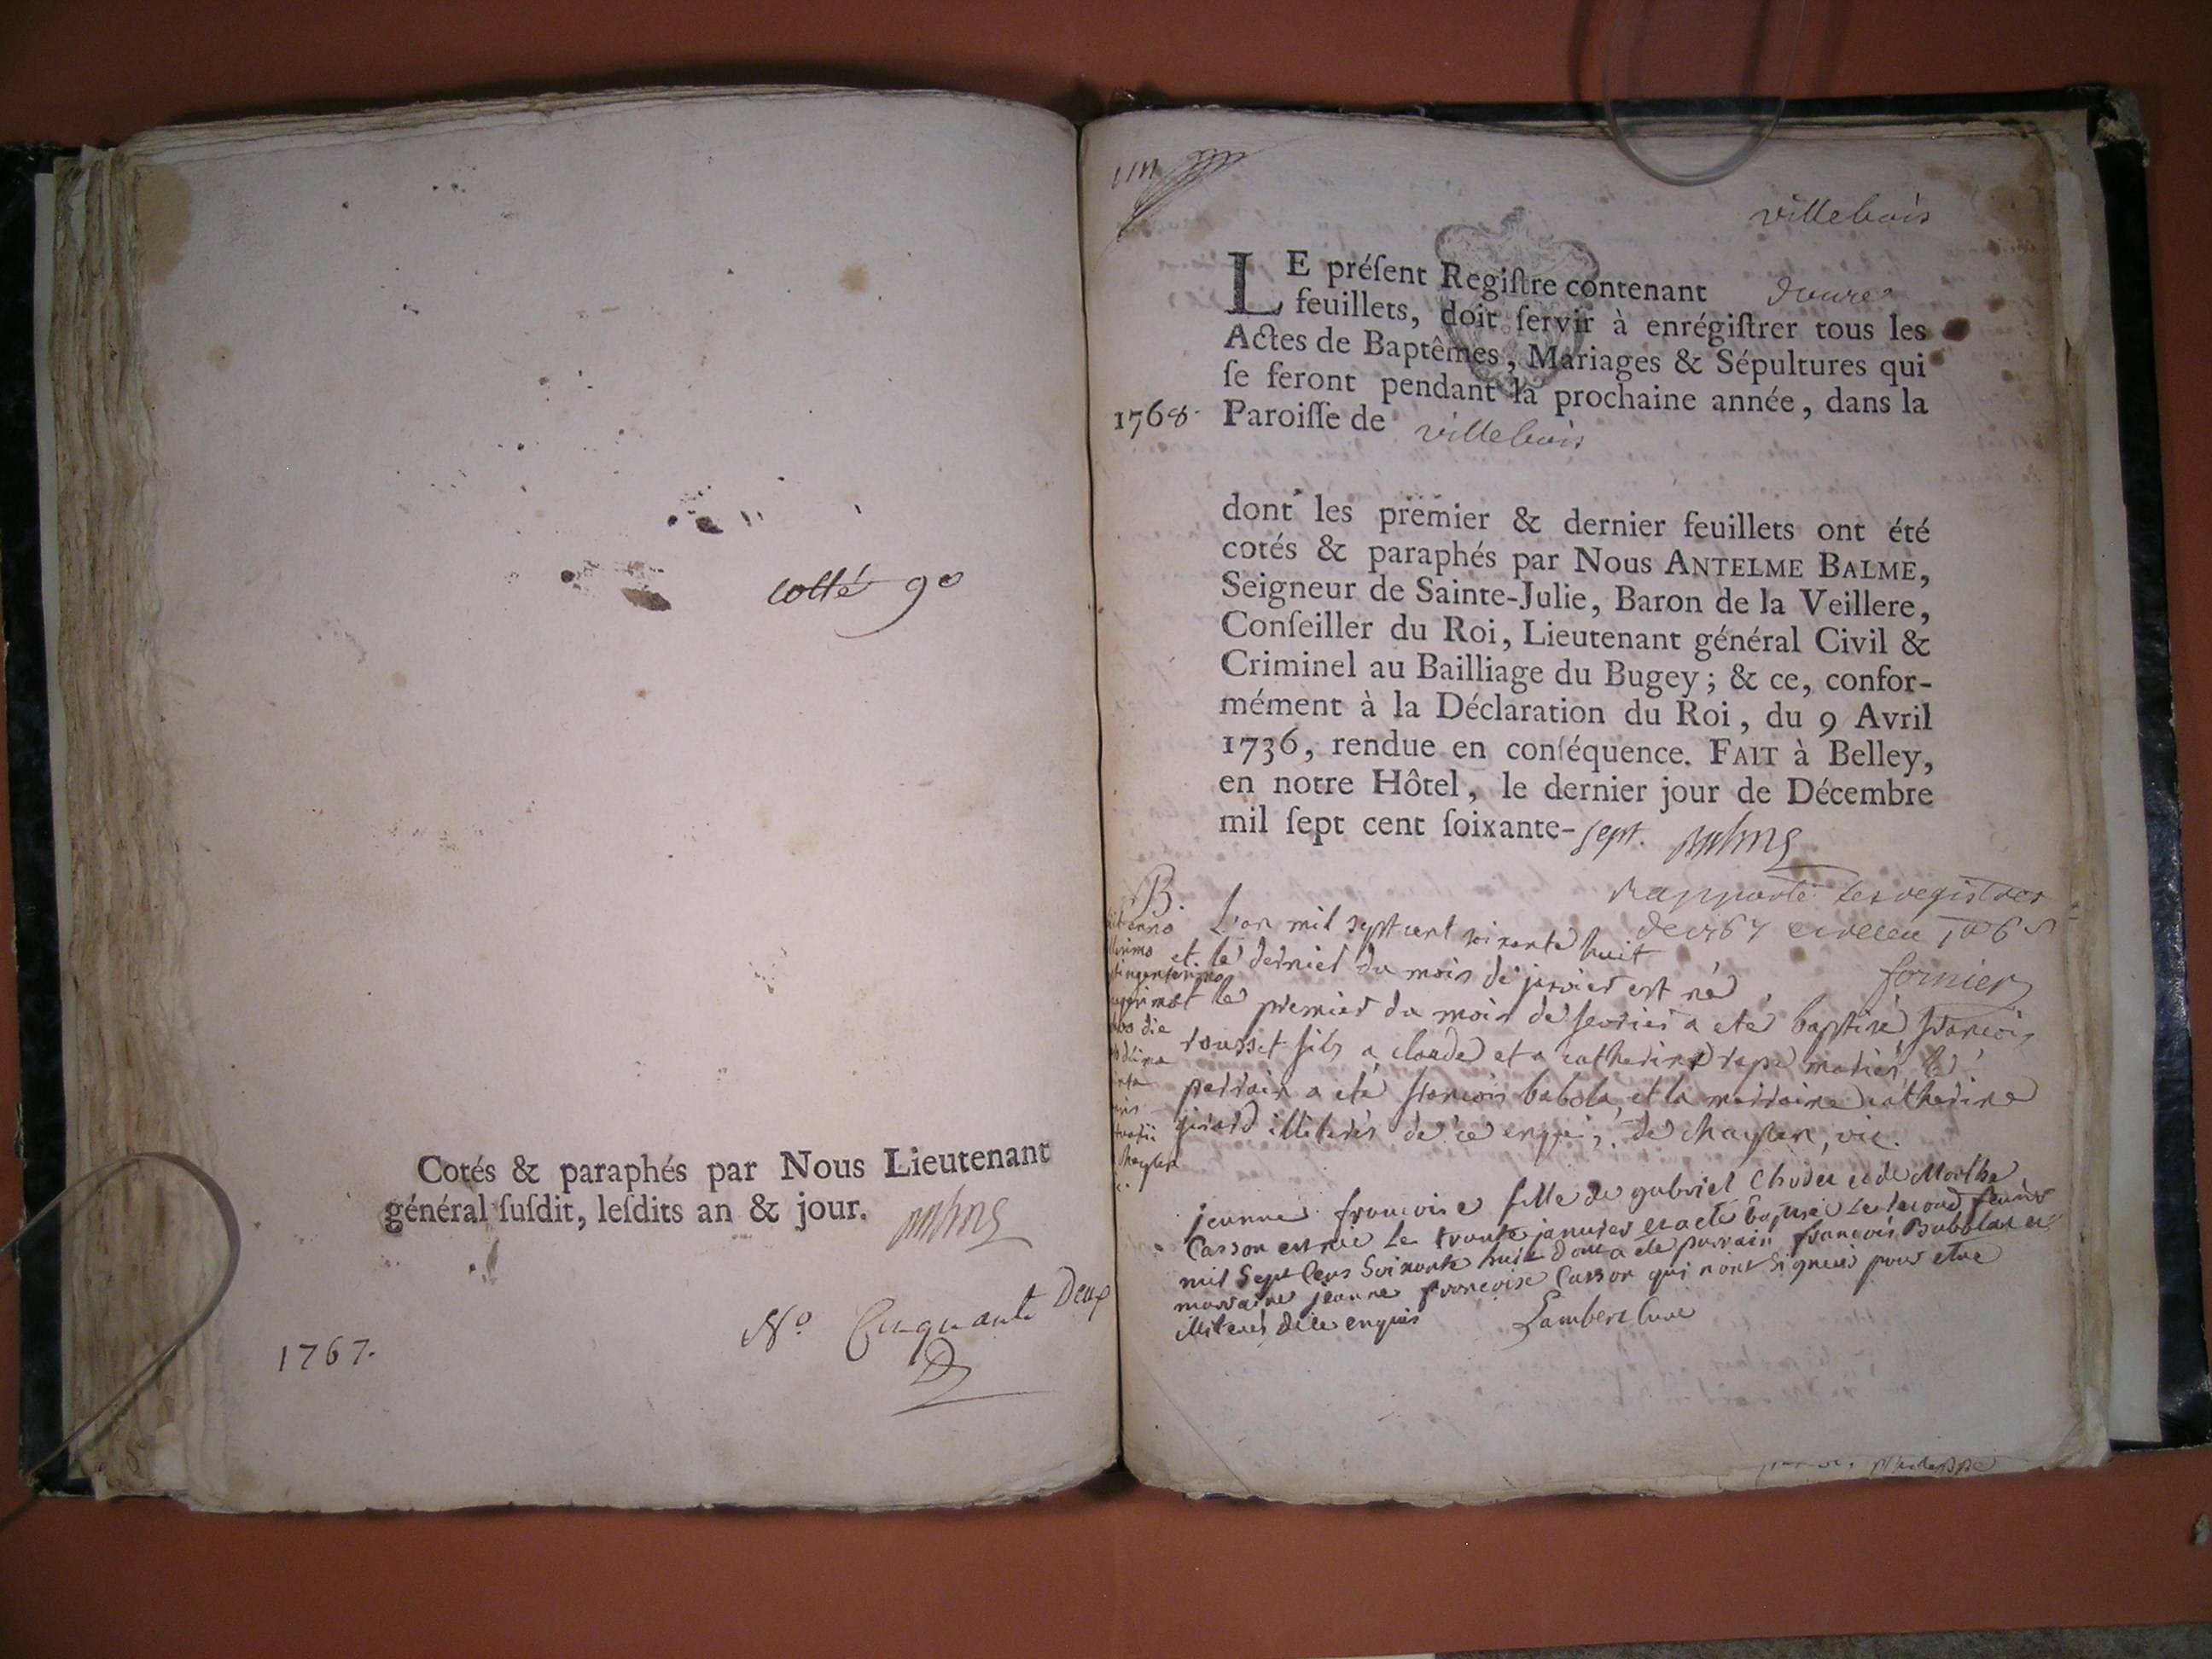 cotté 90
Cotés & paraphés par Nous Lieutenant
général ſuſdit, leſdits an & jour.
N.º Cinquante Deux
1767.
villebois
LE préſent Regiſtre contenant douze
feuillets, doit ſervir à enrégiſtrer tous les
Actes de Baptêmes, Mariages & Sépultures qui
ſe feront pendant la prochaine année, dans la
1768. Paroiſſe de villebois
dont les premier & dernier feuillets ont été
cotés & paraphés par Nous ANTELME BALME,
Seigneur de Sainte-Julie, Baron de la Veillere,
Conſeiller du Roi, Lieutenant général Civil &
Criminel au Bailliage du Bugey; & ce, confor-
mément à la Déclaration du Roi, du 9 Avril
1736, rendue en conſéquence. FAIT à Belley,
en notre Hôtel, le dernier jour de Décembre
mil ſept cent ſoixante-sept.
Rapporté les registres
fornier
B.
L'an mil sept cent soixante huit
et le dernier du mois de janvier est né
et le premier du mois de fevrier a eté baptisé francois
rousset fils a claude et a catherine mariés, le
parrain a eté francois babola et la marraine catherine
girard illiterés de ce enquis, vic.
jeanne francoise fille de gabriel et de Marthe
Casson est née le trante janvier et a eté baptisé le second fevrier
mil sept cens soixante huit dont a ete parrain françois Babolat et
marraine jeanne francoise Casson qui n'ont signeis pour etre
illiteres de ce enquis Lambert Curé